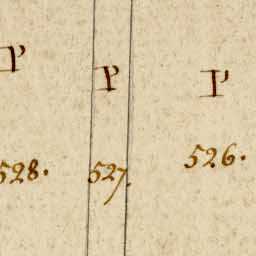 P P P
528. 527. 526.